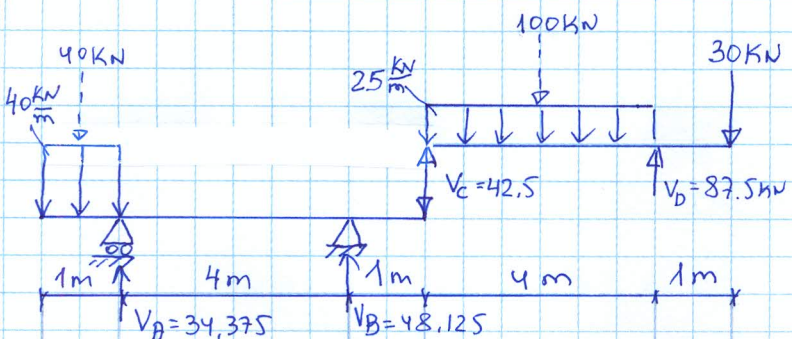 100KN
40KN
30KN
25 KN/m
40 KN/m
Vc=42,5
VD=87.5KN
1m
4m
1m
4m
1m
VA=34,375
VB=48.125